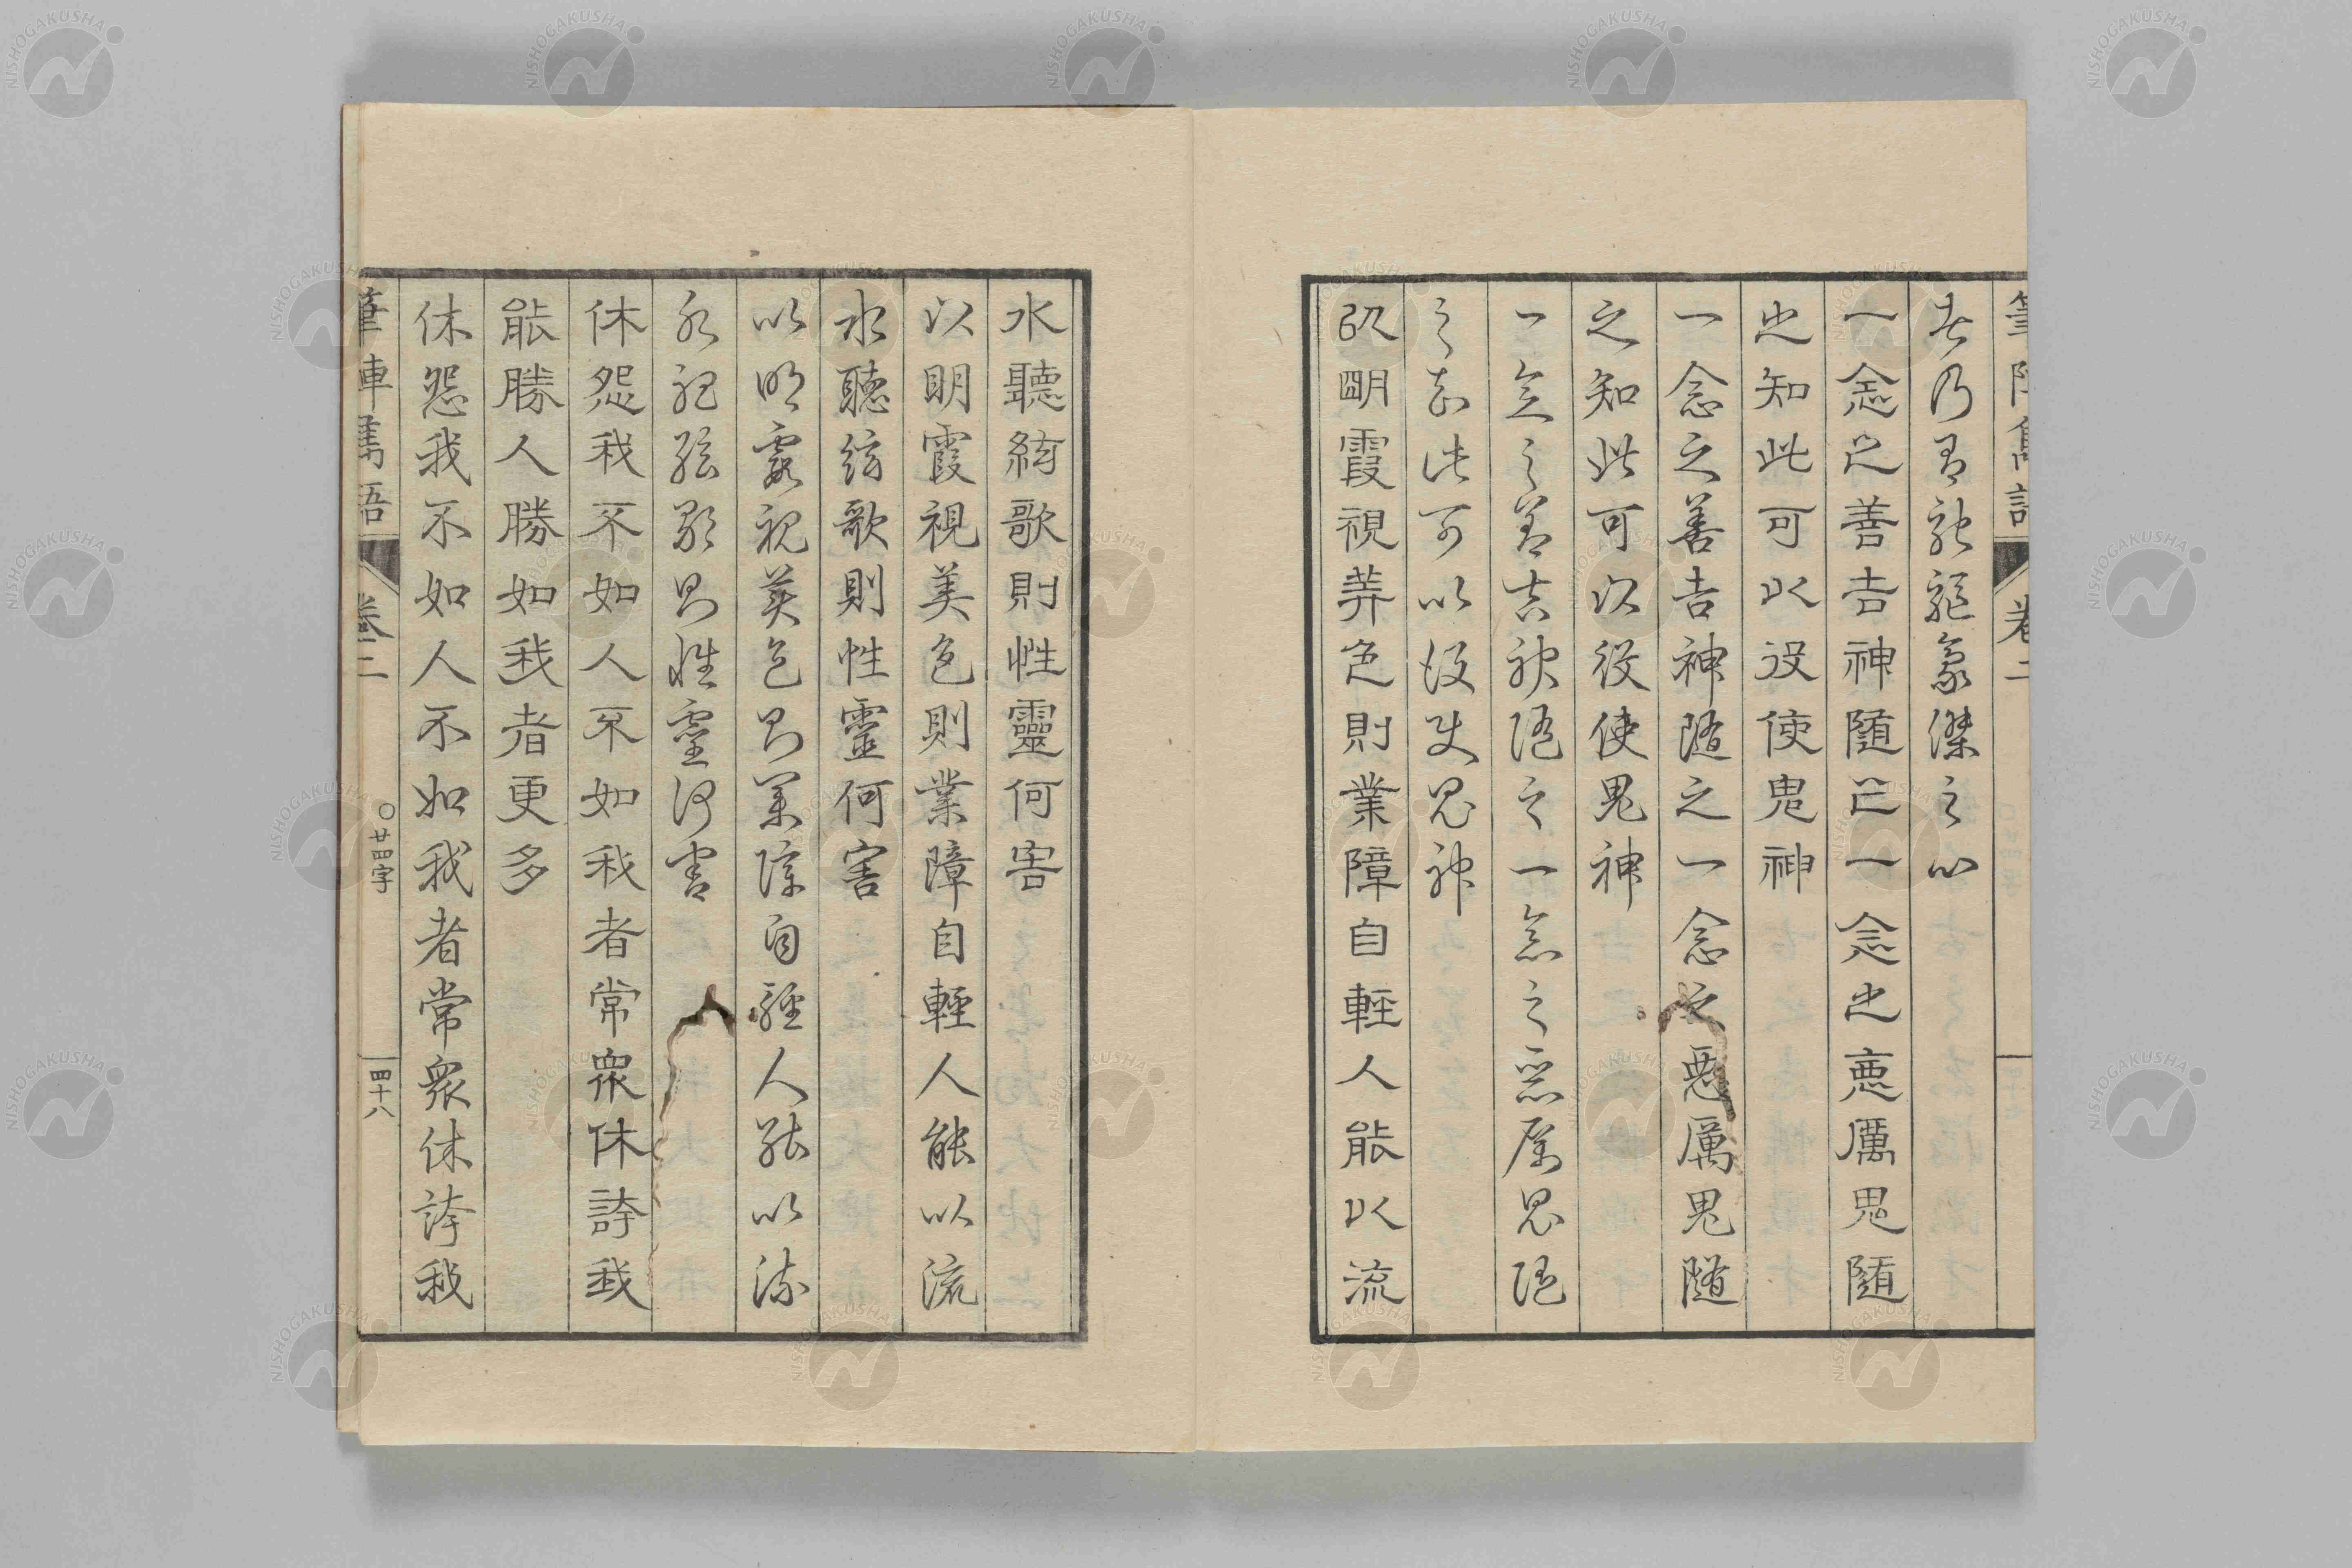 筆陣雋語
卷二
者乃有龍驤豪傑之心
一念之善吉神随之一念之惡厲鬼随
之知此可以役使鬼神
一念之善吉神隨之一念之惡厲鬼隨
之知此可以役使鬼神
一念之善吉神随之一念之惡厲鬼随
之知此可以役使鬼神
以明霞視美色則業障自輕人能以流
水聽絃歌則性靈何害
以明霞視美色則業障自輕人能以流
水聽絃歌則性靈何害
以明霞視美色則業障自輕人能以流
水聽絃歌則性靈何害
休怨我不如人不如我者常衆休誇我
能勝人勝如我者更多
休怨我不如人不如我者常衆休誇我
筆陣雋語
卷二
○廿四字
四十八